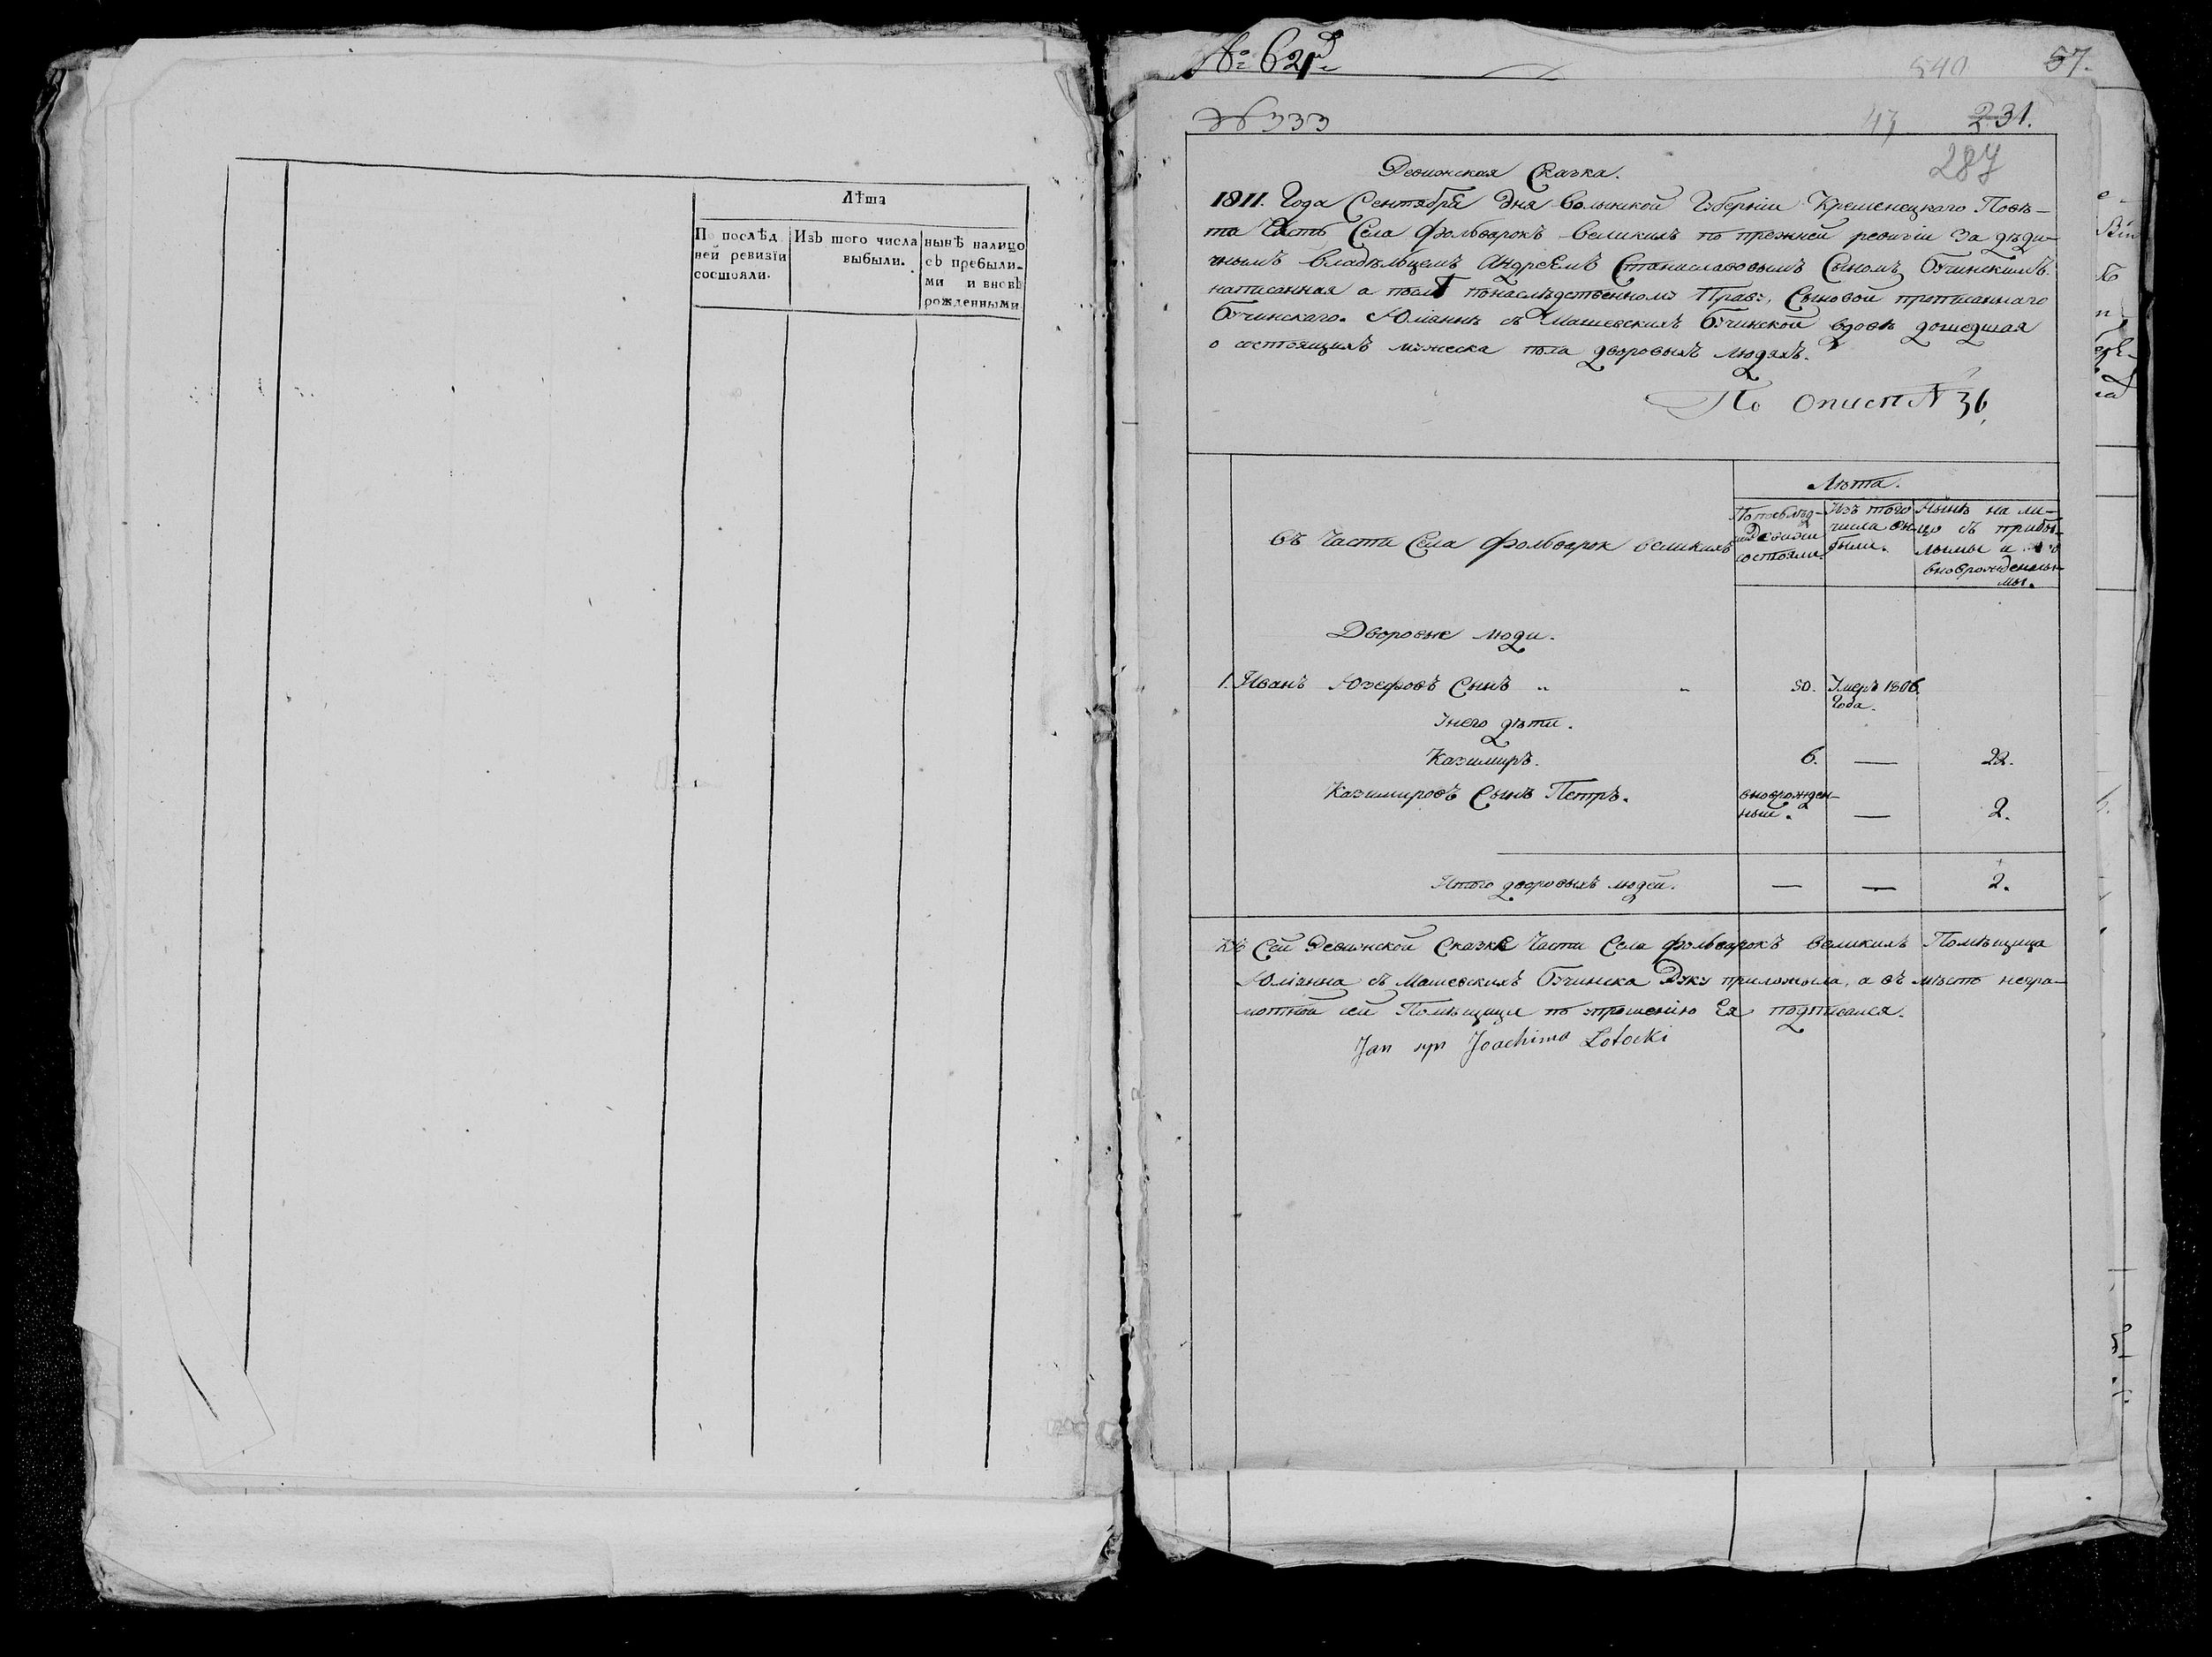 Лѣта
По послѣд
ней ревизїи
состояли.
Изъ того числа
выбыли.
нынѣ налицо
съ пребыли-
ми и вновь
рожденными
№ 62
540 57.
№ 333
47 231.
287
Ревижская Сказка.
1811. Года Сентября дня волынской Губерніи Кременецкаго Повѣ-
та Часть Села Фольварокъ Великихъ по прежней ревизіи За дѣди-
чнымъ владѣльцемъ Андреемъ Станиславовымъ Сыномъ Бучинскимъ
написанная а послѣ понаслѣдственному Праву, Сыновой прописаннаго
Бучинскаго. Юліаннѣ съ Машевскихъ Бучинской вдовѣ дошедшая
о состоящихъ мужеска пола дворовыхъ людяхъ.
По описи № 36,
Лѣта.
въ Части Села Фольварок великихъ
По послѣд-
ней Ревизіи
состояли.
Изъ того
числа вы-
были.
Нынѣ на ли-
цо съ прибы-
лымы и
вноврожденны-
мы.
Дворовые люди.
1. Иванъ Юзефовъ Сынъ „ „ 50. Умеръ 1806.
Года.
Унего дѣти.
Казимиръ. 6. — 22.
Казимировъ Сынъ Петръ. вноврожден-
ный. — 2.
Итого дворовыхъ людей. — — 2.
Къ Сей Ревижской Сказкѣ Части Села фольварокъ Великихъ Помѣщица
Юліанна съ Машевскихъ Бучинска Руку приложила, а въ мѣсто негра-
мотной сей Помѣщици по прошенію Ея подписался.
Jan syn Joachima Łotocki